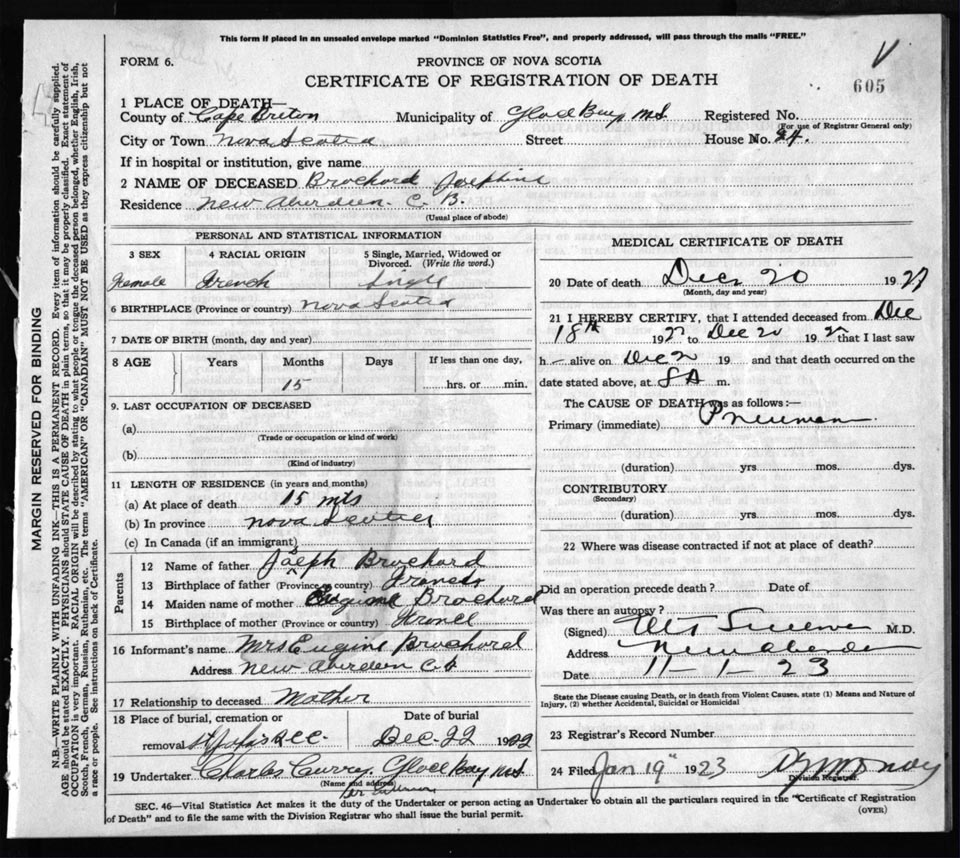 This form if placed in an unsealed envelope marked "Dominion Statistics Free", and properly addressed, will pass through the mails "FREE."
FORM 6.
PROVINCE OF NOVA SCOTIA
CERTIFICATE OF REGISTRATION OF DEATH
605
1 PLACE OF DEATH—
County of Cape Breton Municipality of Glace Bay N.S. Registered No.
(For use of Registrar General only)
City or Town Nova Scotia Street House No. 24.
If in hospital or institution, give name
2 NAME OF DECEASED Brochard Josephine
Residence New Aberdeen. C. B.
(Usual place of abode)
PERSONAL AND STATISTICAL INFORMATION
3 SEX 4 RACIAL ORIGIN 5 Single, Married, Widowed or Divorced. (Write the word.)
Female French Single
6 BIRTHPLACE (Province or country) Nova Scotia
7 DATE OF BIRTH (month, day and year)
8 AGE Years Months Days If less than one day,
15 hrs. or min.
9. LAST OCCUPATION OF DECEASED
(a)
(Trade or occupation or kind of work)
(b)
(Kind of industry)
11 LENGTH OF RESIDENCE (in years and months)
(a) At place of death 15 mts
(b) In province Nova Scotia
(c) In Canada (if an immigrant)
Parents
12 Name of father Joseph Brochard
13 Birthplace of father (Province or country)
14 Maiden name of mother Brochard
15 Birthplace of mother (Province or country)
16 Informant's name Mrs Eugine Brochard
Address New Aberdeen C.B
17 Relationship to deceased Mother
18 Place of burial, cremation or Date of burial
removal Dec. 22 1922
19 Undertaker Charles Curry Glace Bay N.S.
(Name and address)
MEDICAL CERTIFICATE OF DEATH
20 Date of death Dec 20 1922
(Month, day and year)
21 I HEREBY CERTIFY, that I attended deceased from Dec
18th 1922 to Dec 20 1922 that I last saw
h— alive on Dec 20 19 and that death occurred on
date stated above, at 8 A m.
The CAUSE OF DEATH was as follows:—
Primary (immediate)
(duration) yrs mos. dys.
CONTRIBUTORY
(Secondary)
(duration) yrs. mos. dys.
22 Where was disease contracted if not at place of death?
Did an operation precede death? Date of
Was there an autopsy?
(Signed) M.D.
Address New Aberdeen
Date 11-1-23
State the Disease causing Death, or in death from Violent Causes, state (1) Means and Nature of
Injury, (2) whether Accidental, Suicidal or Homicidal
23 Registrar's Record Number
24 Filed Jan 19th 1923
Division Registrar.
SEC. 46—Vital Statistics Act makes it the duty of the Undertaker or person acting as Undertaker to obtain all the particulars required in the "Certificate of Registration
of Death" and to file the same with the Division Registrar who shall issue the burial permit.
(OVER)
MARGIN RESERVED FOR BINDING
N.B.—WRITE PLAINLY WITH UNFADING INK—THIS IS A PERMANENT RECORD. Every item of information should be carefully supplied.
AGE should be stated EXACTLY. PHYSICIANS should STATE CAUSE OF DEATH in plain terms, so that it may be properly classified. Exact statement of
OCCUPATION is very important. RACIAL ORIGIN will be described by stating to what people or tongue the deceased person belonged, whether English, Irish,
Scotch, French, German, Russian, Ruthenian, etc. The terms "AMERICAN" or "CANADIAN" MUST NOT BE USED as they express citizenship but not
a race or people. See instructions on back of Certificate.